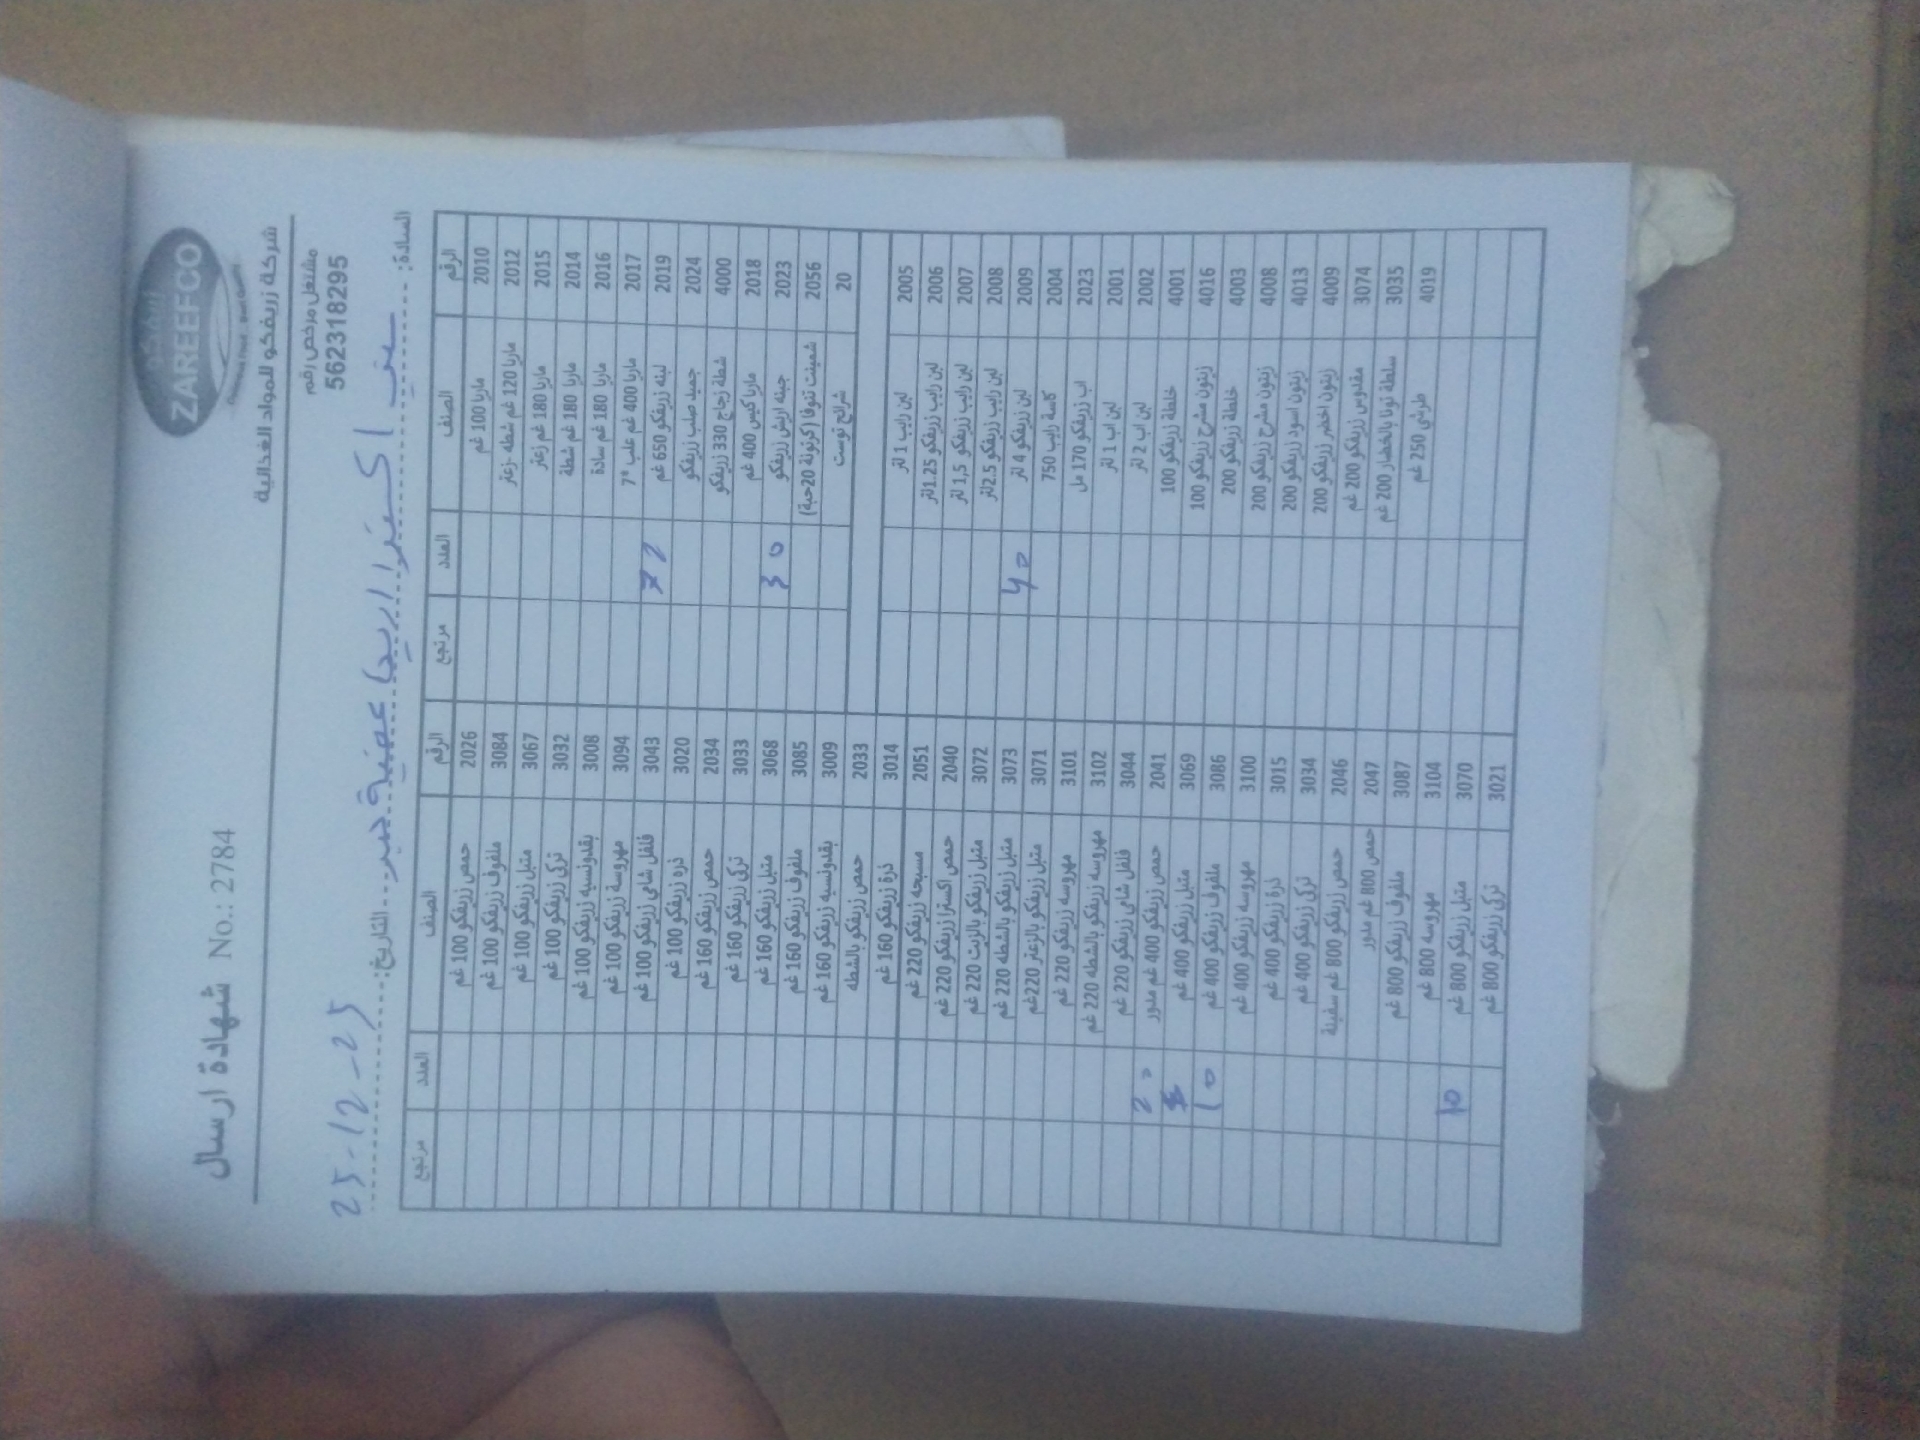 زريفكو
ZAREEFCO
شركة زريفكو للمواد الغذائية
شهادة ارسال No.: 2784
مشتغل مرخص رقم
562318295
السادة: سند اكسترا اريحا عقبة جبر التاريخ: 25-12-25
الرقم الصنف العدد مرتجع الرقم الصنف العدد مرتجع
2010 ماريا 100 غم 2026 حمص زريفكو 100 غم
2012 ماريا 120 غم شطه -زعتر 3084 ملفوف زريفكو 100 غم
2015 ماريا 180 غم زعتر 3067 متبل زريفكو 100 غم
2014 ماريا 180 غم شطة 3032 تركي زريفكو 100 غم
2016 ماريا 180 غم سادة 3008 بقدونسيه زريفكو 100 غم
2017 ماريا 400 غم علب *7 3094 مهروسة زريفكو 100 غم
2019 لبنه زريفكو 650 غم 72 3043 فلفل شامي زريفكو 100 غم
2024 جميد صلب زريفكو 3020 ذره زريفكو 100 غم
4000 شطة زجاج 330 زريفكو 2034 حمص زريفكو 160 غم
2018 ماريا كيس 400 غم 3033 تركي زريفكو 160 غم
2023 جبنه ارتش زريفكو 30 3068 متبل زريفكو 160 غم
2056 شمينت تنوفا (كرتونة 20حبة) 3085 ملفوف زريفكو 160 غم
20 شرائح توست 3009 بقدونسيه زريفكو 160 غم
2033 حمص زريفكو بالشطه
3014 ذرة زريفكو 160 غم
2005 لبن رايب 1 لتر 2051 مسبحه زريفكو 220 غم
2006 لبن رايب زريفكو 1.25لتر 2040 حمص اكسترا زريفكو 220 غم
2007 لبن رايب زريفكو 1,5 لتر 3072 متبل زريفكو بالزيت 220 غم
2008 لبن رايب زريفكو 2.5لتر 3073 متبل زريفكو بالشطه 220 غم
2009 لبن زريفكو 4 لتر 40 3071 متبل زريفكو بالزعتر 220غم
2004 كاسة رايب 750 3101 مهروسه زريفكو 220 غم
2023 اب زريفكو 170 مل 3102 مهروسه زريفكو بالشطه 220 غم
2001 لبن اب 1 لتر 3044 فلفل شامي زريفكو 220 غم
2002 لبن اب 2 لتر 2041 حمص زريفكو 400 غم مدور 20
4001 خلطة زريفكو 100 3069 متبل زريفكو 400 غم
4016 زيتون مشرح زريفكو 100 3086 ملفوف زريفكو 400 غم 10
4003 خلطة زريفكو 200 3100 مهروسه زريفكو 400 غم
4008 زيتون مشرح زريفكو 200 3015 ذرة زريفكو 400 غم
4013 زيتون اسود زريفكو 200 3034 تركي زريفكو 400 غم
4009 زيتون اخضر زريفكو 200 2046 حمص زريفكو 800 غم سفينة
3074 مقدوس زريفكو 200 غم 2047 حمص 800 غم مدور
3035 سلطة تونا بالخضار 200 غم 3087 ملفوف زريفكو 800 غم
4019 طرشي 250 غم 3104 مهروسه 800 غم
3070 متبل زريفكو 800 غم 10
3021 تركي زريفكو 800 غم